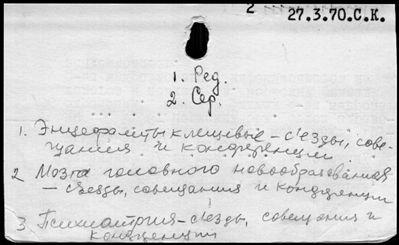 2 27.3.70.С.К.
1. Ред.
2. Сер.
1. Энцефалиты клещевые – съезды, сове-
щания и конференции
2 Мозга головного новообразования
– съезды, совещания и конференции
3. Психиатрия – съезды, совещания и
конференции